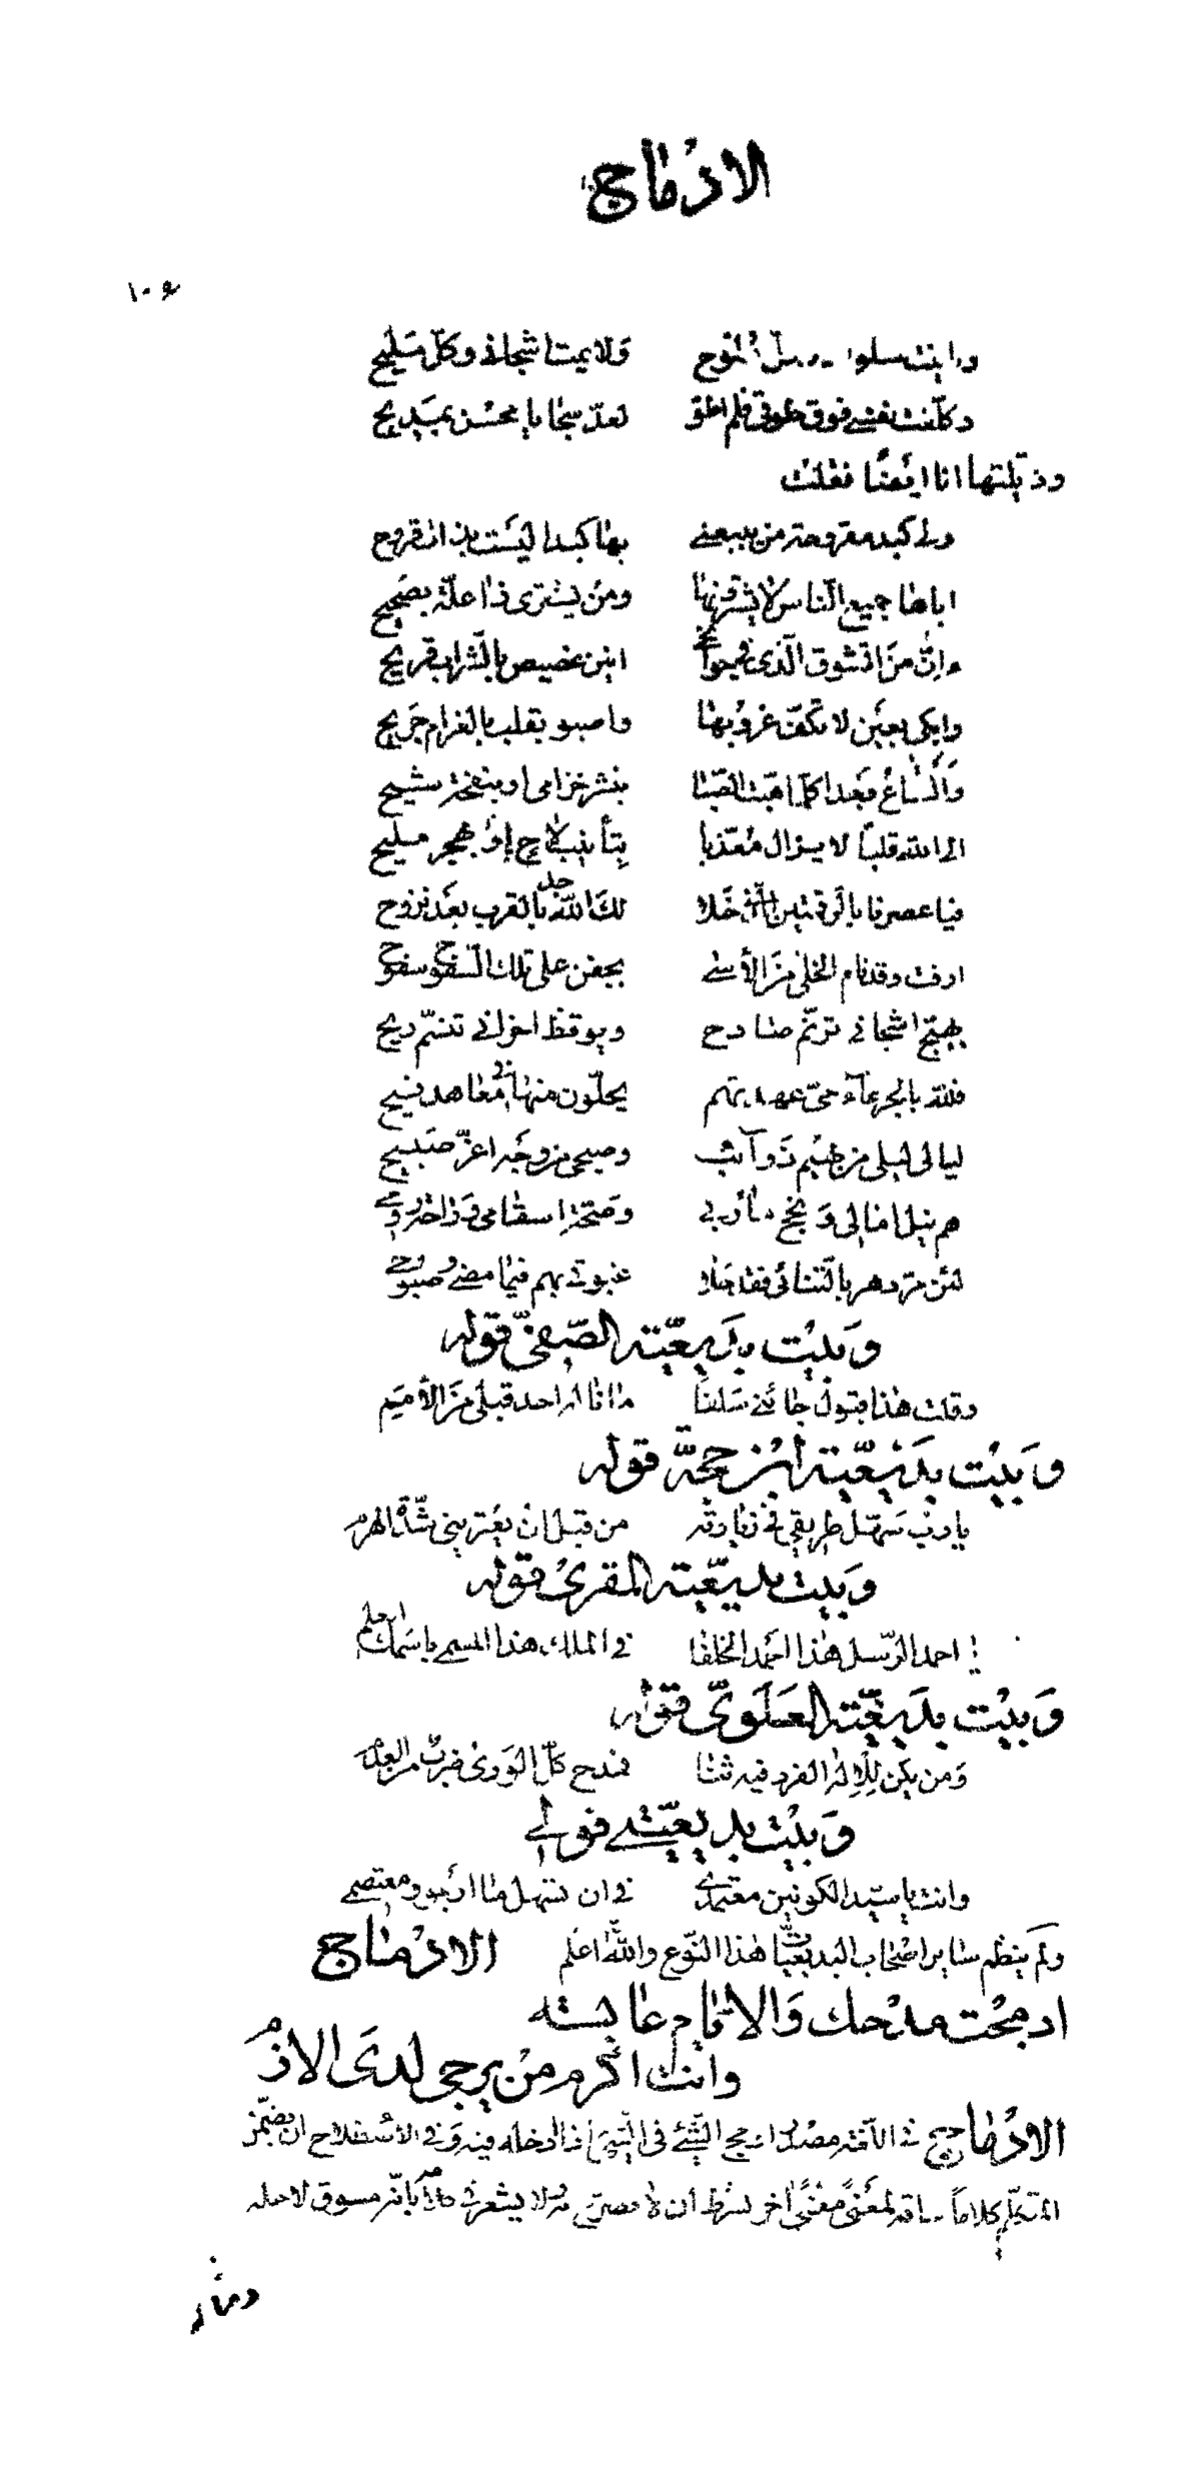 الادماج
١٠٤
قلا يمت اشجاني وكل مليح
وكلفت نفسي فوق طوقي فلم اطق لعد سجايا محسن بمديح
وذيلتها انا ايضا فقلت
ولي كبد مقروحة من يبيعني بها كبدا ليست بذات قروح
اباها جميع الناس لا يشترونها ومن يشتري ذا علة بصحيح
وابكي بعين لا تكف غروبها واصبو بقلب بالغرام جريح
والتاع وجدا كلما هبت الصبا بنشر خزامى او بنفحة شيح
الى الله قلبا لا يزال معذبا بتأنيب لاح او بهجر مليح
فيا عصرنا بالرقمتين الذي خلا لك الله جد بالقرب بعد نزوح
ارقت وقد نام الخلي من الأسى بجفن على تلك السفوح سفوح
يهيج اشجاني ترنم صادح ويوقظ احزاني تنسم ريح
فلله بالجرعاء حي عهدتهم يحلون منها في معاهد فيح
ليالي ليلي من وصبحي من وجه اغر صبيح
هم نيل امالي ونجح مأربي وصحة اسقامي وراحة روحي
لئن مر دهر بالتنائي فقد خلا غبوقي بهم فيما مضى وصبوحي
وبيت بديعية الصفي قوله
وقلت هذا قبول جاءني سلفا ما ناله احد قبلي من الأمم
وبيت بديعية ابن حجة قوله
يا رب سهل طريقي في زيارته من قبل ان يعتريني شدة الهرم
وبيت بديعية المقري قوله
احمد الرسل هذا احمد الخلفا في الملك هذا المسمى باسمك
وبيت بديعية العلوي قوله
ومن يكن للاله الفرد فيه ثنا فمدح كل الورى ضرب من العدم
وبيت بديعيتي قولي
وانت يا سيد الكونين معتمدي في ان تنهل ما ارجو ومعتصمي
ولم ينظم ساير اصحاب البديعيات هذا النوع والله اعلم الادماج
ادمجت مدحك والايام عابسة
وانت اكرم من يرجى لدى الازم
الادماج في اللغة مصدر ادمج الشيء في الشيء اذا ادخله فيه وفي الاصطلاح ان يضمن
المتكلم كلاما ساقه لمعنى معنى اخر بشرط ان لا يصرح به ولا يشعر في كلامه بانه مسوق لاجله